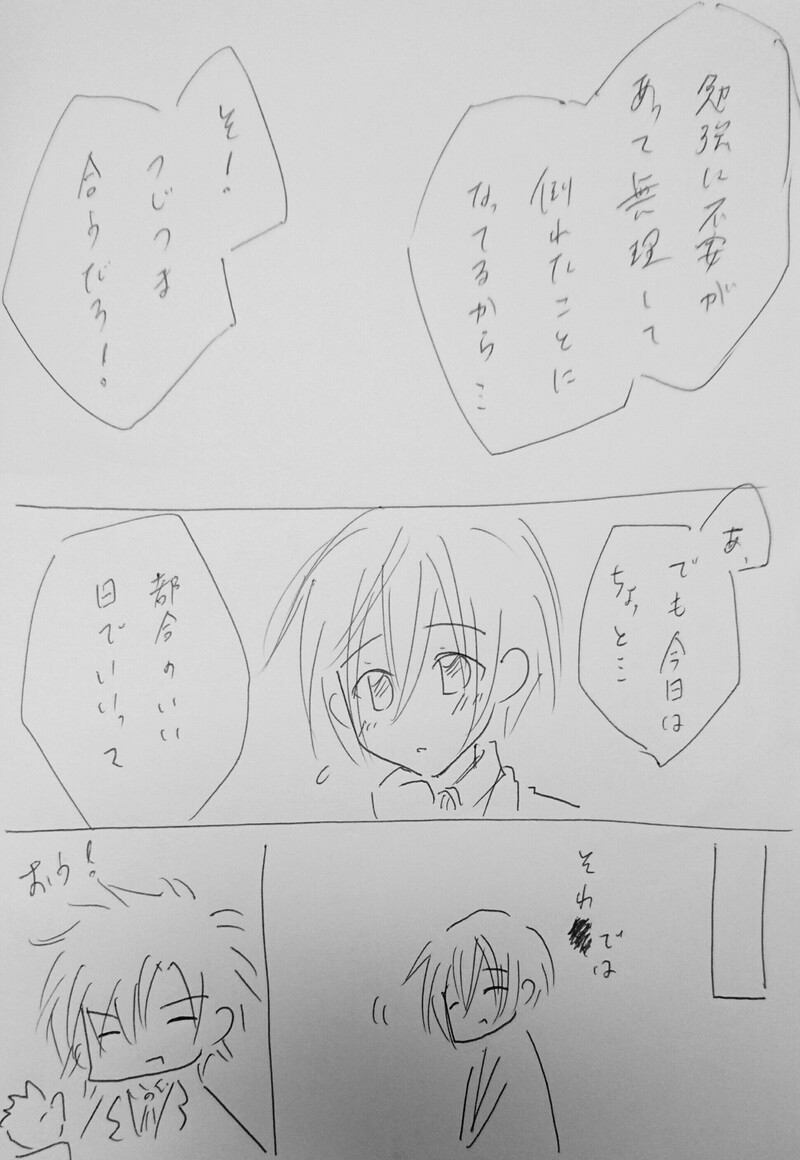 勉強に不安が
あって無理して
倒れたことに
なってるから…
そ！
つじつま
合うだろ！
あ、
でも今日は
ちょっと…
都合のいい
日でいいって
それ
では
おう！